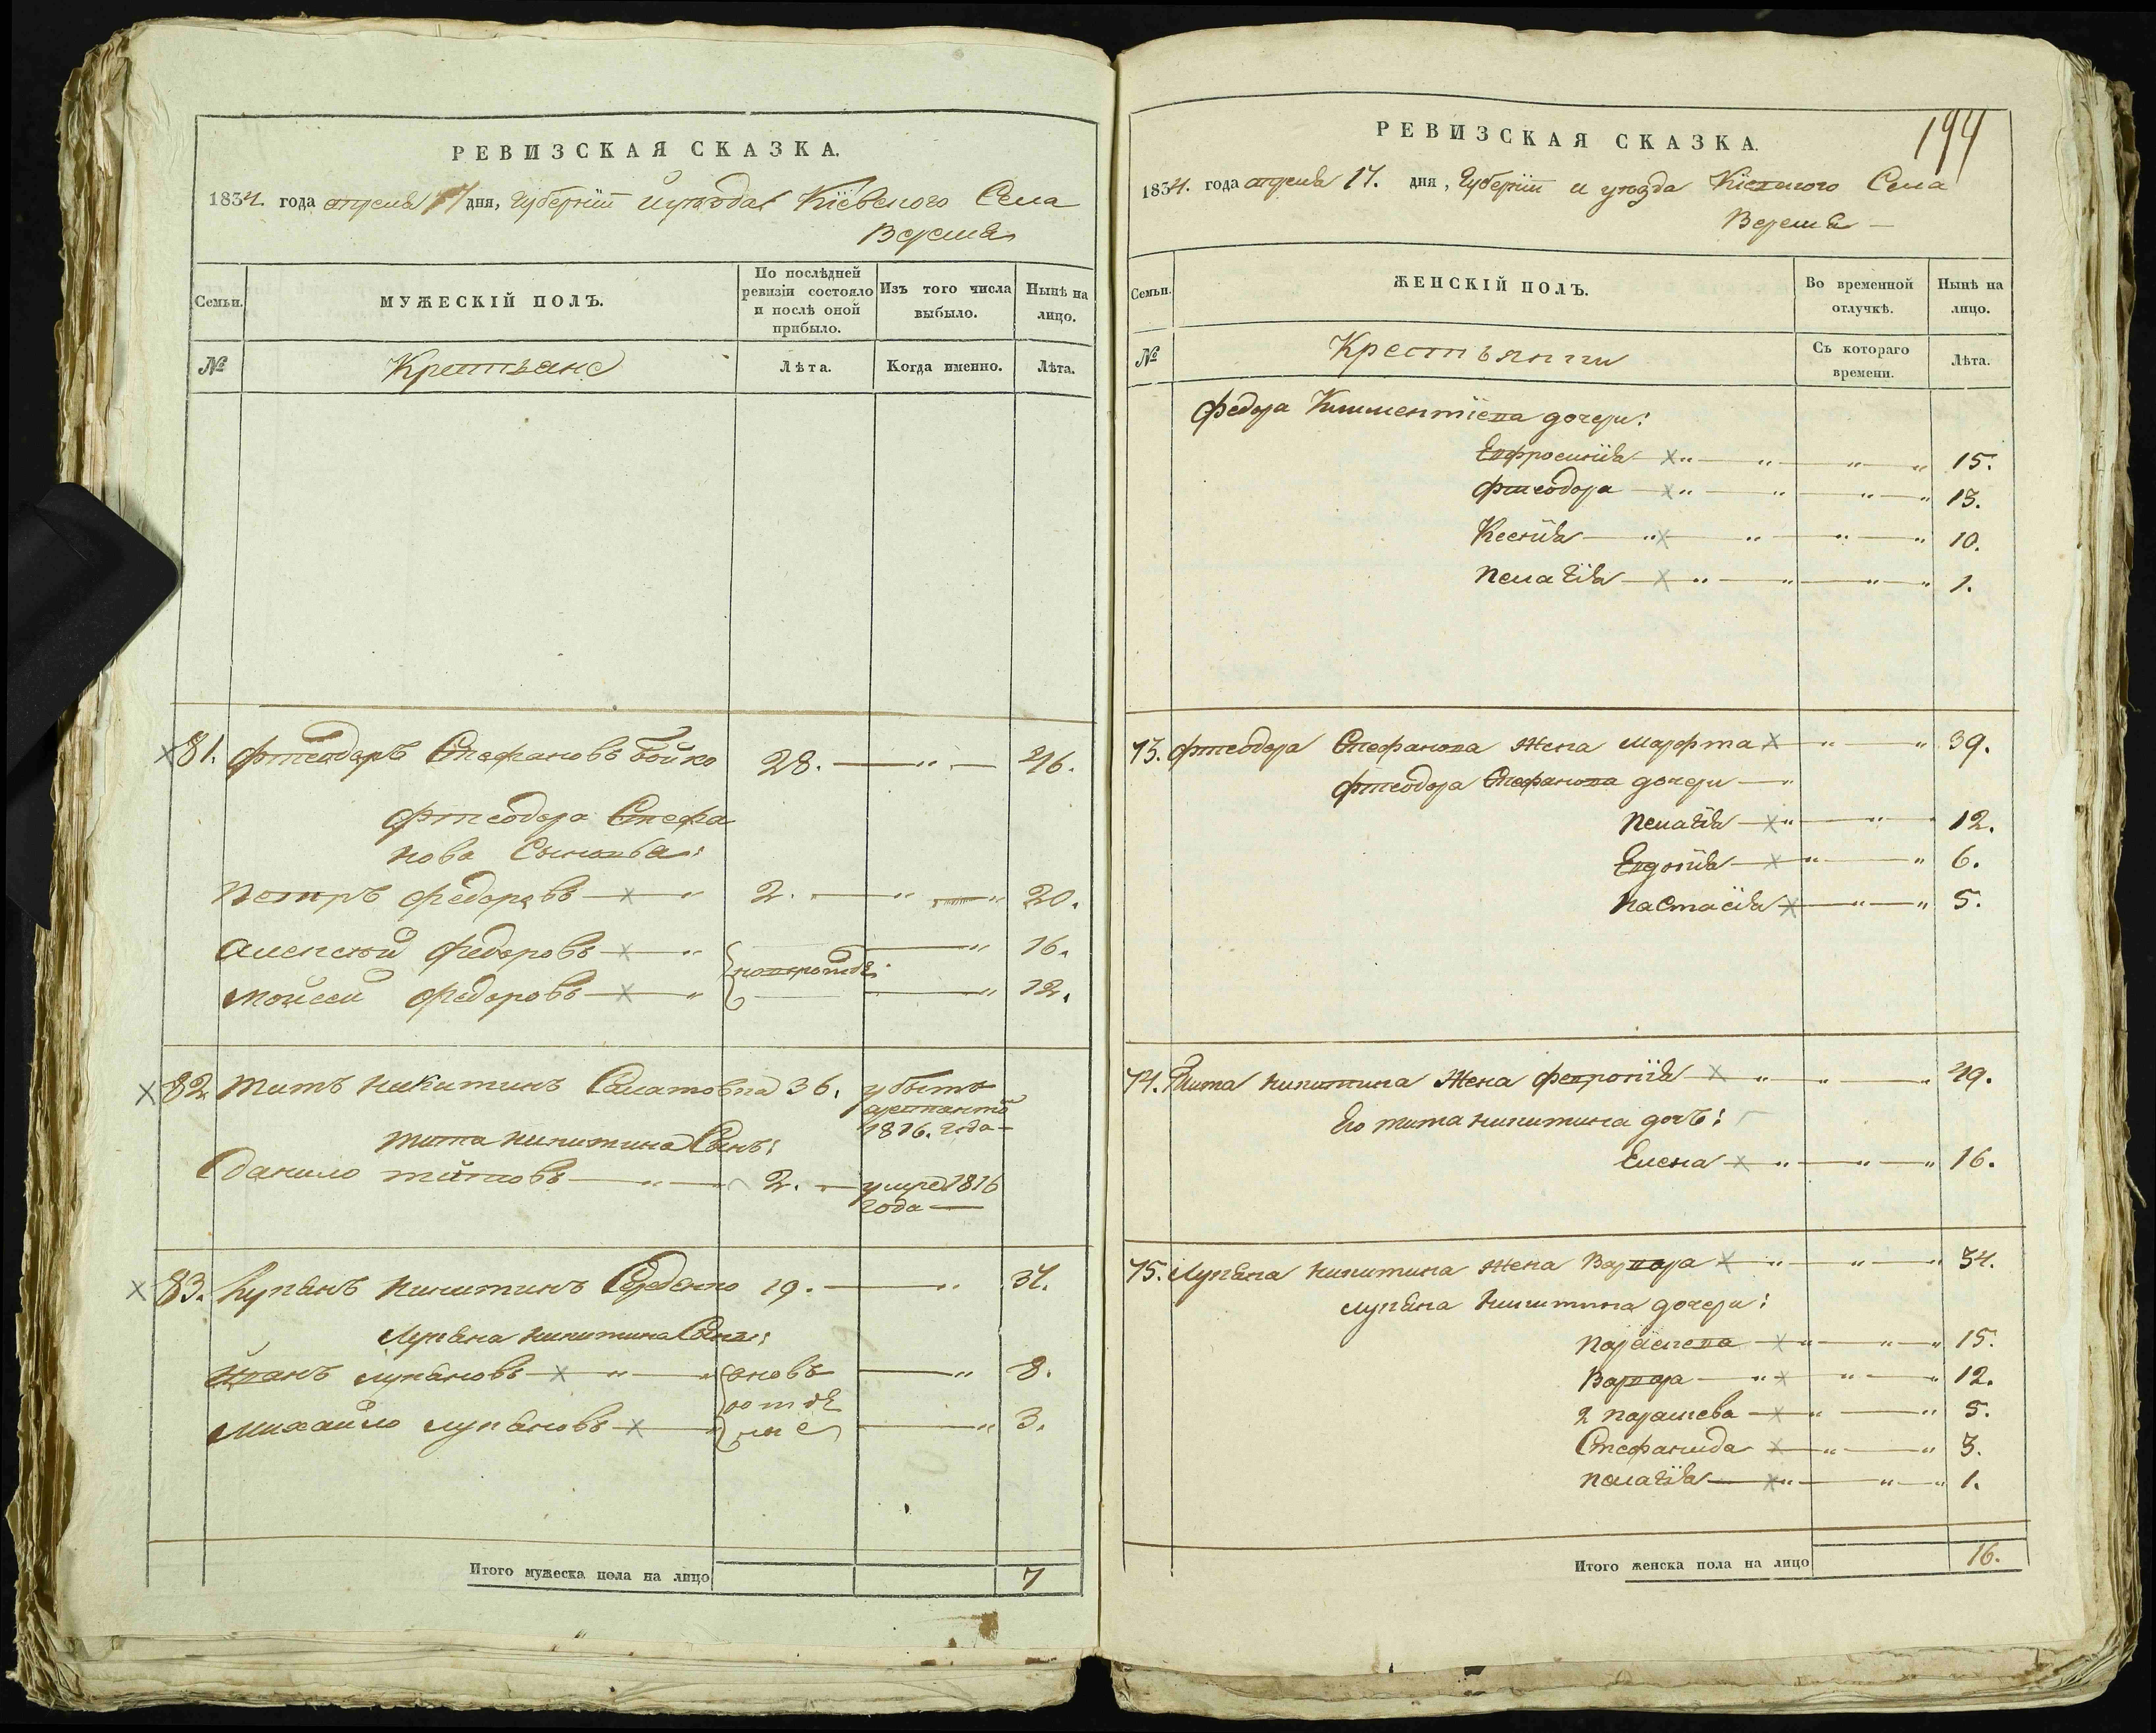 РЕВИЗСКАЯ СКАЗКА.
1834. года апреля 17 дня, Губернiи и уѣзда Кiевского Села
Веремья
Семьи. МУЖЕСКIЙ ПОЛЪ. По послѣдней ревизiи состояло и послѣ оной прибыло. Изъ того числа выбыло. Нынѣ на лицо.
№ Крестьяне Лѣта. Когда именно. Лѣта.
81. Фтеодоръ Стефановъ Бойко 28. 46.
Фтеодора Стефа
нова Сыновья:
Петръ Федоровъ 2. 20.
Алексѣй Федоровъ 16.
новорожде
Мойсей Федоровъ 12.
82. Титъ Никитинъ 36. убытъ
1816. года
Тита Никитина Сынъ:
Данило Титовъ 2. умре 1816
года
83. Лукьянъ Никитинъ Середенко 19. 37.
Лукьяна Никитина Сыны:
Иванъ Лукьяновъ вновь 8.
рожде
Михайло Лукьяновъ ные 3.
Итого мужеска пола на лицо 7
194
РЕВИЗСКАЯ СКАЗКА.
1834. года апреля 17. дня, Губернiи и уѣзда Кiевского Села
Веремья
Семьи. ЖЕНСКIЙ ПОЛЪ. Во временной отлучкѣ. Нынѣ на лицо.
№ Крестьянки Съ котораго времени. Лѣта.
Федора Климентiева дочери:
Евфросинiя 15.
Фтеодора 13.
Ксенiя 10.
Пелагiя 1.
73. Фтеодора Стефанова жена Марфта 39.
Фтеодора Стефанова дочери
Пелагiя 12.
Евдокiя 6.
Настасiя 5.
74. Тита Никитина жена Февронiя 49.
Его Тита Никитина дочь:
Елена 16.
75. Лукьяна Никитина жена Варвара 34.
Лукьяна Никитина дочери:
Параскева 15.
Варвара 12.
2 Параскева 5.
Стефанида 3.
Пелагiя 1.
Итого женска пола на лицо 16.